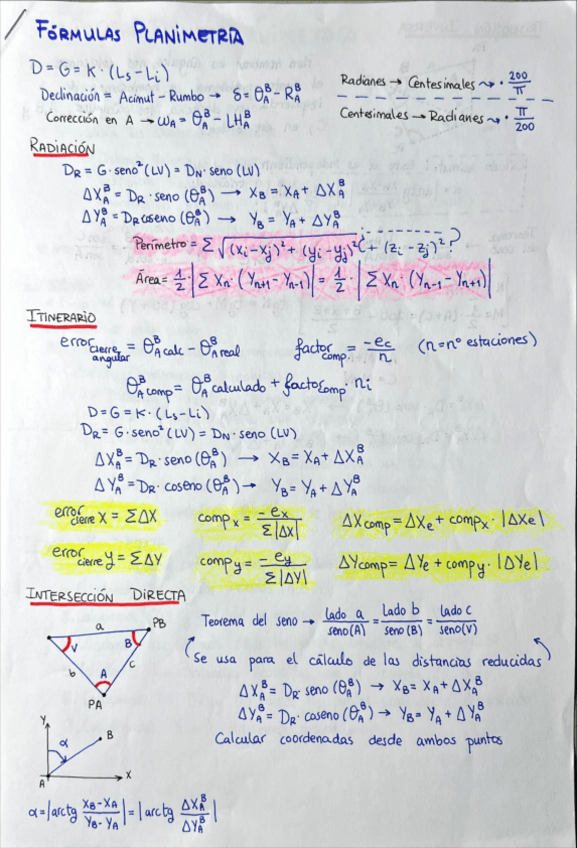 FÓRMULAS PLANIMETRÍA
D = G = K · (Ls - Li)
Declinación = Acimut - Rumbo → δ = θ_A^B - R_A^B
Corrección en A → ω_A = θ_A^B - LH_A^B
Radianes → Centesimales ⇝ · 200/π
Centesimales → Radianes ⇝ · π/200
RADIACIÓN
D_R = G · seno² (LV) = D_N · seno (LV)
ΔX_A^B = D_R · seno (θ_A^B) → X_B = X_A + ΔX_A^B
ΔY_A^B = D_R coseno (θ_A^B) → Y_B = Y_A + ΔY_A^B
Perímetro = Σ √(x_i - x_j)² + (y_i - y_j)² (+ (z_i - z_j)² ?
Área = 1/2 |Σ X_n · (Y_n+1 - Y_n-1)| = 1/2 · |Σ X_n · (Y_n-1 - Y_n+1)|
ITINERARIO
error cierre angular = θ_A^B calc - θ_A^B real
factor comp = -e_c/n (n = nº estaciones)
θ_A^B comp = θ_A^B calculado + factor comp · n_i
D = G = K · (Ls - Li)
D_R = G · seno² (LV) = D_N · seno (LV)
ΔX_A^B = D_R · seno (θ_A^B) → X_B = X_A + ΔX_A^B
ΔY_A^B = D_R · coseno (θ_A^B) → Y_B = Y_A + ΔY_A^B
error cierre x = ΣΔX comp_x = -e_x/Σ|ΔX| ΔX comp = ΔX_e + comp_x · |ΔX_e|
error cierre y = ΣΔY comp_y = -e_y/Σ|ΔY| ΔY comp = ΔY_e + comp_y · |ΔY_e|
INTERSECCIÓN DIRECTA
a
PB
V
B
b
A
c
PA
Teorema del seno → lado a/seno(A) = lado b/seno(B) = lado c/seno(V)
Se usa para el cálculo de las distancias reducidas
ΔX_A^B = D_R · seno (θ_A^B) → X_B = X_A + ΔX_A^B
ΔY_A^B = D_R · coseno (θ_A^B) → Y_B = Y_A + ΔY_A^B
Calcular coordenadas desde ambos puntos
Y
α
B
A
X
α = |arctg X_B - X_A/Y_B - Y_A| = |arctg ΔX_A^B/ΔY_A^B|